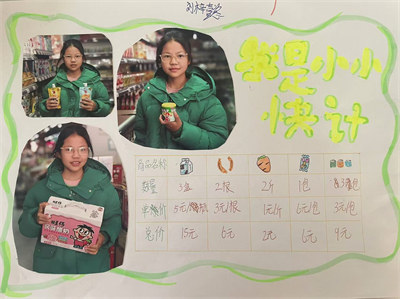 我是小小
快计
商品名称
数量 3盒 2根 2斤 1包 各3包
单价 5元/ 3元/根 1元/斤 6元/包 3元/包
总价 15元 6元 2元 6元 9元